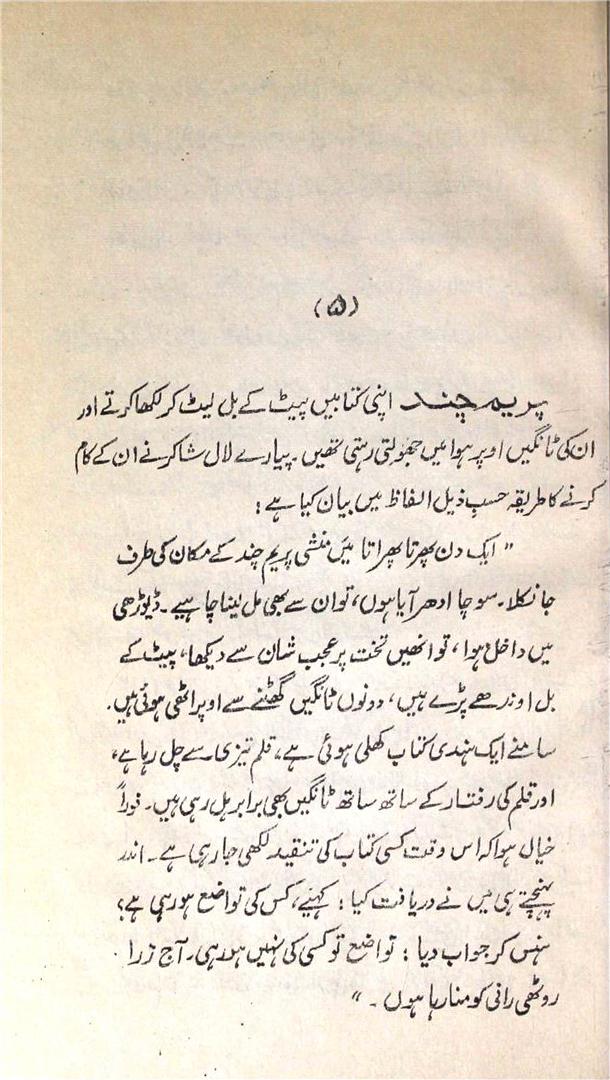 (۵)
پریم چند اپنی کتابیں پیٹ کے بل لیٹ کر لکھا کرتے اور
ان کی ٹانگیں اوپر ہوا میں جھولتی رہتی تھیں۔ پیارے لال شاکر نے ان کے کام
کرنے کا طریقہ حسبِ ذیل الفاظ میں بیان کیا ہے :
" ایک دن پھرتا پھراتا میں منشی پریم چند کے مکان کی طرف
جا نکلا۔ سوچا ادھر آیا ہوں، تو ان سے بھی مل لینا چاہیے۔ ڈیوڑھی
میں داخل ہوا، تو انھیں تخت پر عجب شان سے دیکھا، پیٹ کے
بل اوندھے پڑے ہیں، دونوں ٹانگیں گھٹنے سے اوپر اٹھی ہوئی ہیں۔
سامنے ایک ہندی کتاب کھلی ہوئی ہے، قلم تیزی سے چل رہا ہے،
اور قلم کی رفتار کے ساتھ ساتھ ٹانگیں بھی برابر ہل رہی ہیں۔ فوراً
خیال ہوا کہ اس وقت کسی کتاب کی تنقید لکھی جا رہی ہے۔ اندر
پہنچتے ہی میں نے دریافت کیا : کہئیے، کس کی تواضع ہو رہی ہے؟
ہنس کر جواب دیا : تواضع تو کسی کی نہیں ہو رہی۔ آج زرا
روٹھی رانی کو منا رہا ہوں ۔ "